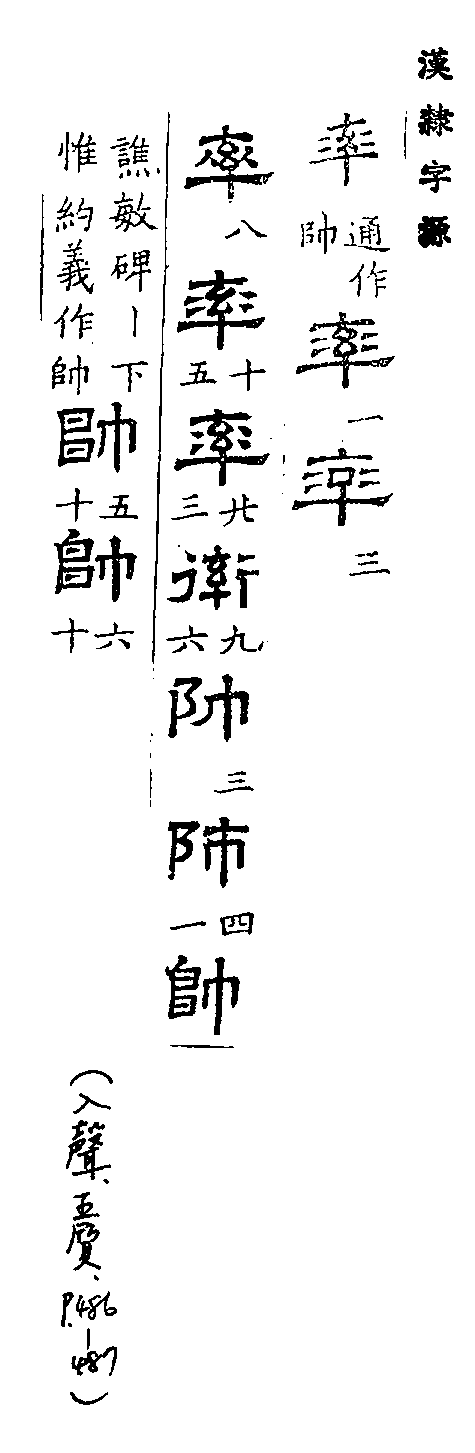 漢隸字源
率通作帥率一率三
率八率十五率廿三衛九六帥三帥四一帥
譙敏碑丨下
惟約義作帥
帥五十帥六十
（入聲、五質、P.486-487）